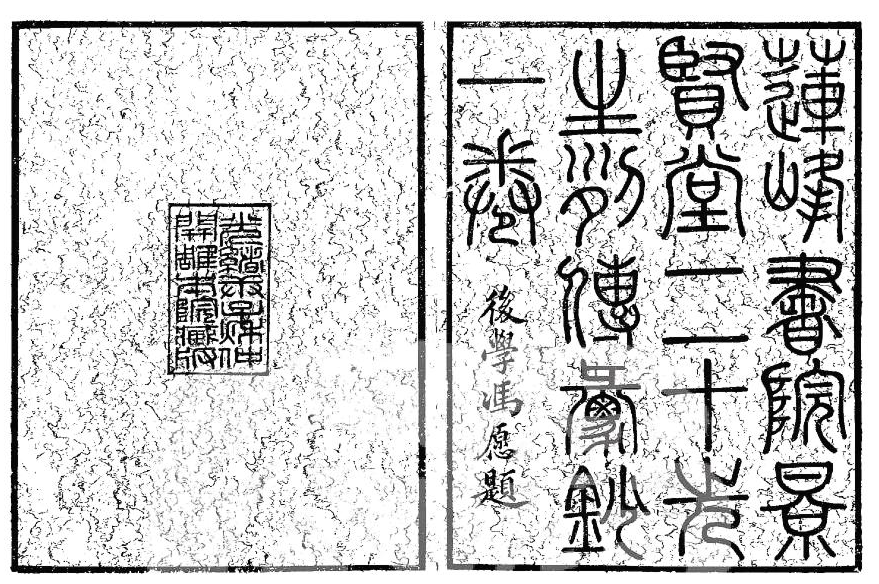 蓮峰書院景
賢堂二十先
生列傳彙鈔
一卷
後學馮愿題
光緒秋仲
開雕本院藏版